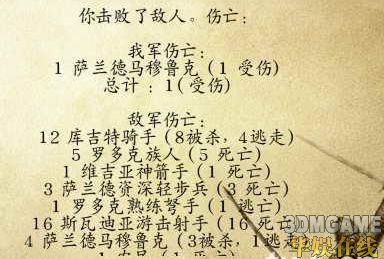 你击败了敌人。伤亡:
我军伤亡:
1 萨兰德马穆鲁克 (1 受伤)
总计 : 1(受伤)
敌军伤亡:
12 库吉特骑手 (8被杀, 4逃走)
5 罗多克族人 (5 死亡)
1 维吉亚神箭手 (1 死亡)
3 萨兰德资深轻步兵 (3 死亡)
1 罗多克熟练弩手 (1 逃走)
16 斯瓦迪亚游击射手 (16 死亡
4 萨兰德马穆鲁克 (3被杀, 1逃走
3DMGAME